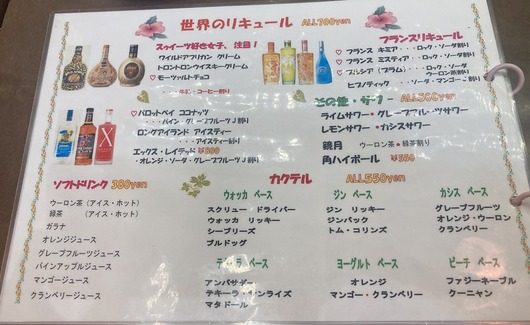 世界のリキュール ALL700yen
スゥイーツ好き女子、注目！
ワイルドアフリカン クリーム
トロントロンウイスキークリーム
♡ モーツァルトチョコ
・・・牛乳・コーヒー割り
♡ パロットベイ ココナッツ
・・・パイン・グレープフルーツJ割り
ロングアイランド アイスティー
・・・アイスティー割り
エックス・レイテッド ¥800
・オレンジ・ソーダ・グレープフルーツJ割り
フランスリキュール
♡ フランス キミア ・・ロック・ソーダ割り
♡ フランス ミスティア ・・ロック・ソーダ割り
(プラム) ・・ロック・ソーダ
ウーロン茶割り
ヒプノティック ・・ソーダ・マンゴーJ割り
その他・サワー ALL500yen
ライムサワー ・ グレープフルーツサワー
レモンサワー ・ カシスサワー
鏡月 ウーロン茶・緑茶割り
角ハイボール ¥550
ソフトドリンク 380yen
ウーロン茶（アイス・ホット）
緑茶 （アイス・ホット）
ガラナ
オレンジジュース
グレープフルーツジュース
パインアップルジュース
マンゴージュース
クランベリージュース
カクテル ALL550yen
ウォッカ ベース
スクリュー ドライバー
ウォッカ リッキー
シーブリーズ
ブルドッグ
ジン ベース
ジン リッキー
ジンバック
トム・コリンズ
カシス ベース
グレープフルーツ
オレンジ・ウーロン
クランベリー
テキーラ ベース
アンバサダー
テキーラ サンライズ
マタドール
ヨーグルト ベース
オレンジ
マンゴー・クランベリー
ピーチ ベース
ファジーネーブル
クーニャン